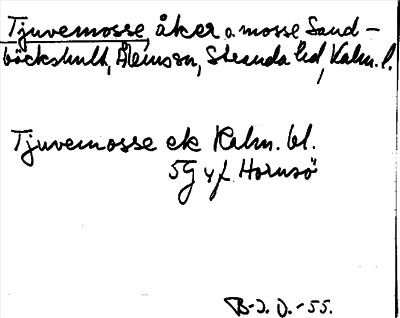 Tjuvemosse, åker o. mosse Sand-
böckshult, Ålemsn, Stranda hd, Kalm. l.
Tjuvemosse ek Kalm. bl.
5G vf Hornsö
B-J. D. -55.